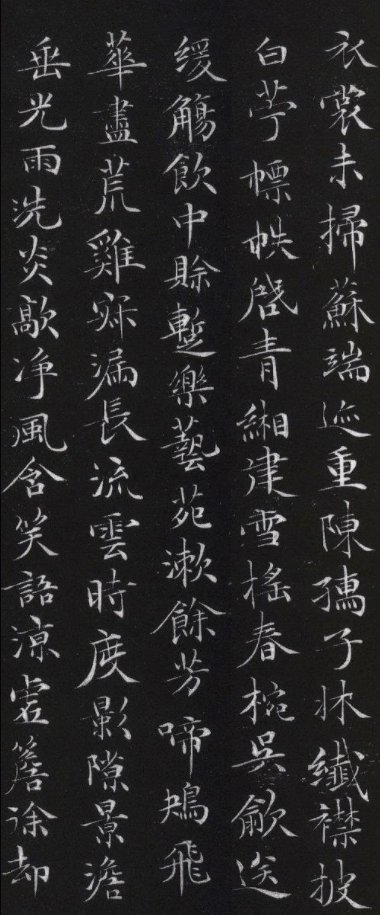 衣裳未掃蘇端迹重陳孺子牀纖襟披
白苧幖帙啓青緗建雪搖春椀吳歈送
緩觴飲中賒蹔樂藝苑漱餘芳啼鴂飛
華盡荒雞寐漏長流雲時度影隙景澹
垂光雨洗炎歊淨風含笑語涼虛簷徐却